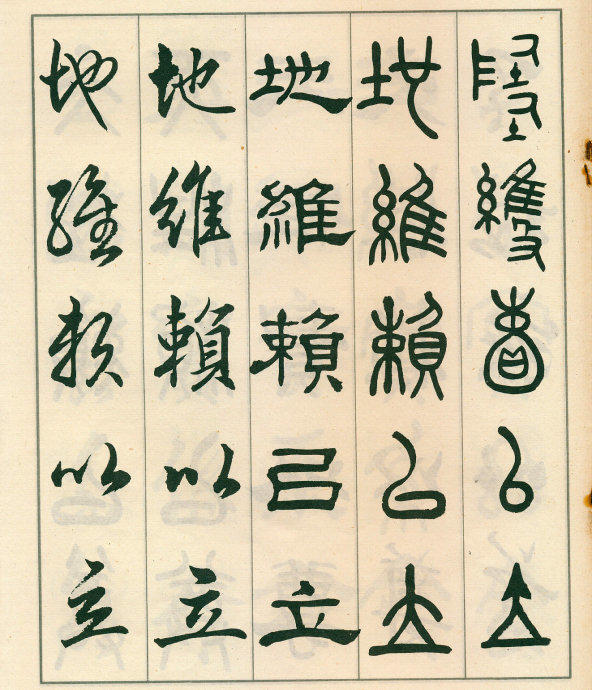 地維賴以立
地維賴以立
地維賴以立
地維賴以立
地維賴以立